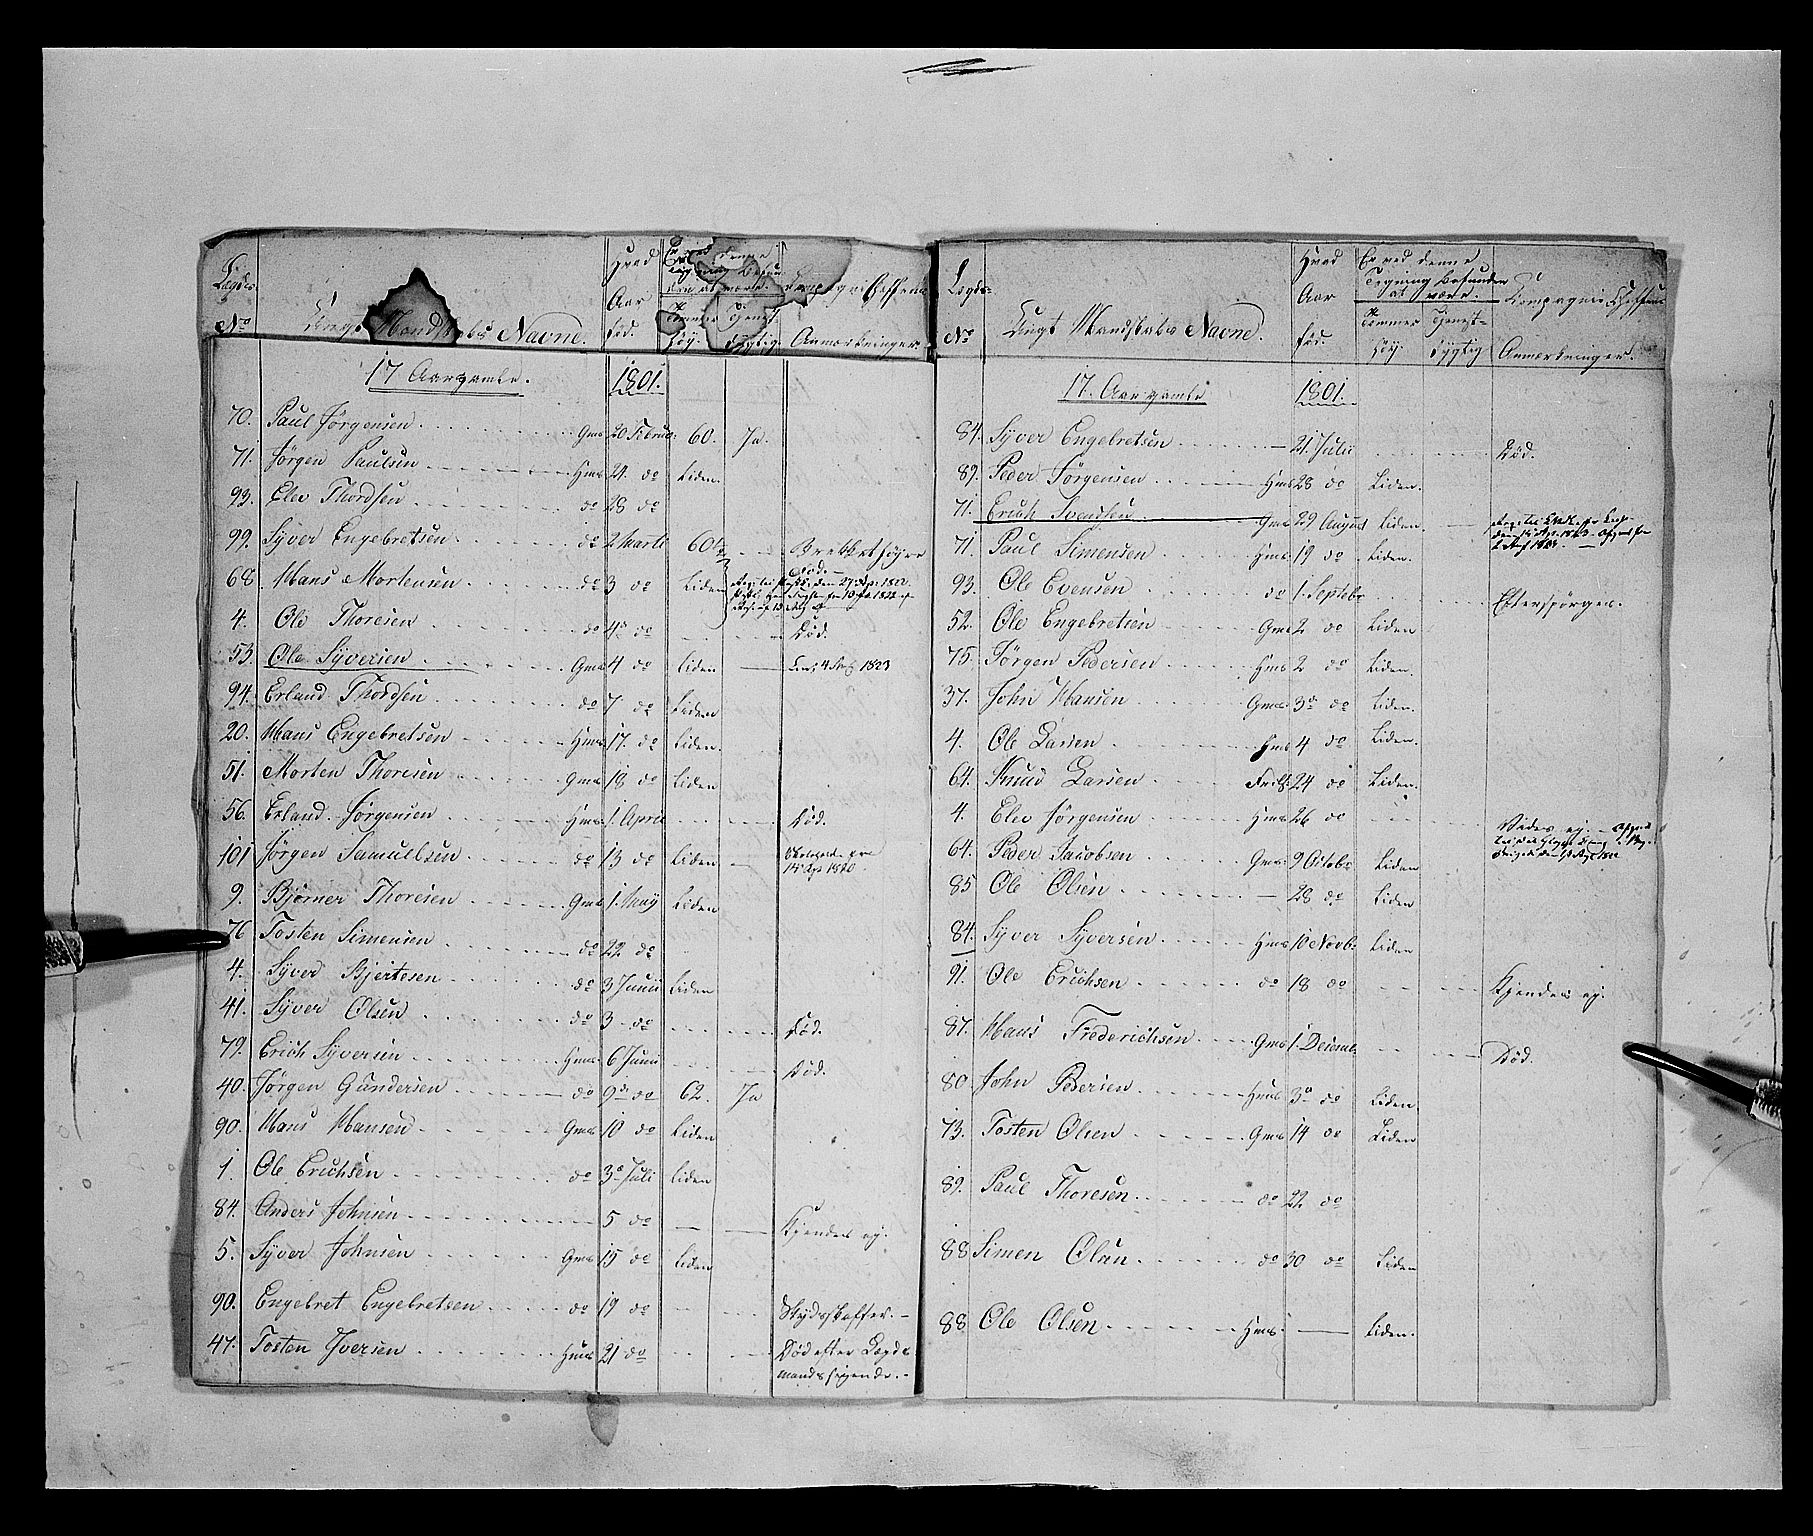 Lægds-
No
Ungt Mandskabs Navne.
Hvad
Aar
fød.
Er ved denne
Tegning befun-
den at være.
Tommer
høy.
Tjenst-
dygtig
Compagnie Cheffens
Anmærkninger
17 Aargamle. 1801.
70. Paul Jørgensen Gms 20 Februar 60. Ja.
71. Jørgen Paulsen Hms 24 do Liden.
93. Elev Thordsen do 28 do
99. Syver Engebretsen do 2 Marti 60½
68. Hans Mortensen do 3 do Liden
4. Ole Thoresen do 4de do Død.
53. Ole Syversen Gms 4 do Liden 1823
94. Erland Thordsen do 7 do Liden
20. Hans Engebretsen Hms 17. do Liden.
51. Morten Thoresen Gms 18 do Liden
56. Erland Jørgensen Hms 1. April Død.
101 Jørgen Samuelsen do 13 do Liden
9. Bjørner Thoresen Gms 1. May Liden
76 Tosten Simensen do 22 do
4. Syver Bjertesen do 3 Junii Liden
41. Syver Olsen do 3 do Død.
79. Erich Syversen Hms 6 Junii Død.
40. Jørgen Gundersen do 9de do 62. Ja
90. Hans Hansen Gms 10 do Liden
1. Ole Erichsen do 3 Juli Liden
84. Anders Johnsen 5 do Kjendes ej.
5. Syver Johnsen Gms 15 do Liden
90. Engebret Engebretsen do 19 do Skydsskaffer.
47. Tosten Iversen Hms 21 do Død efter Lægds
mands sigende.
Lægds-
No
Ungt Mandskabs Navne.
Hvad
Aar
fød.
Er ved denne
Tegning befunden
at være.
Tommer
høy.
Tjenst-
dygtig
Compagnie Cheffens
Anmærkninger.
17. Aargamle 1801.
84. Syver Engebretsen 21 Julii Død.
89. Peder Jørgensen Hms 28 do Liden.
71. Erich Svendsen Gms 29 August Liden
71. Paul Simensen Hms 19 do Liden.
93. Ole Evensen do 1. Septebr Efterspørges.
52. Ole Engebretsen Gms 2 do Liden
75. Jørgen Pedersen Hms 2 do Liden
37. John Hansen Gms 3de do Liden.
4. Ole Larsen Hms 4 do Liden.
64. Knud Larsen 24 do Liden.
4. Elev Jørgensen Hms 26 do
64. Peder Jacobsen Gms 9 Octobr Liden
85 Ole Olsen 28 do Liden
84. Syver Syversen Hms 10 Novbr Liden
91. Ole Erichsen do 18 do Kjendes ej.
87. Hans Frederichsen Gms 1. Decembr Død.
80 John Pedersen Hms 3de do Liden.
73. Tosten Olsen Gms 14 do Liden
89. Paul Thoresen do 22 do
88 Simen Olsen do 30 do Liden
88 Ole Olsen Hms Liden.